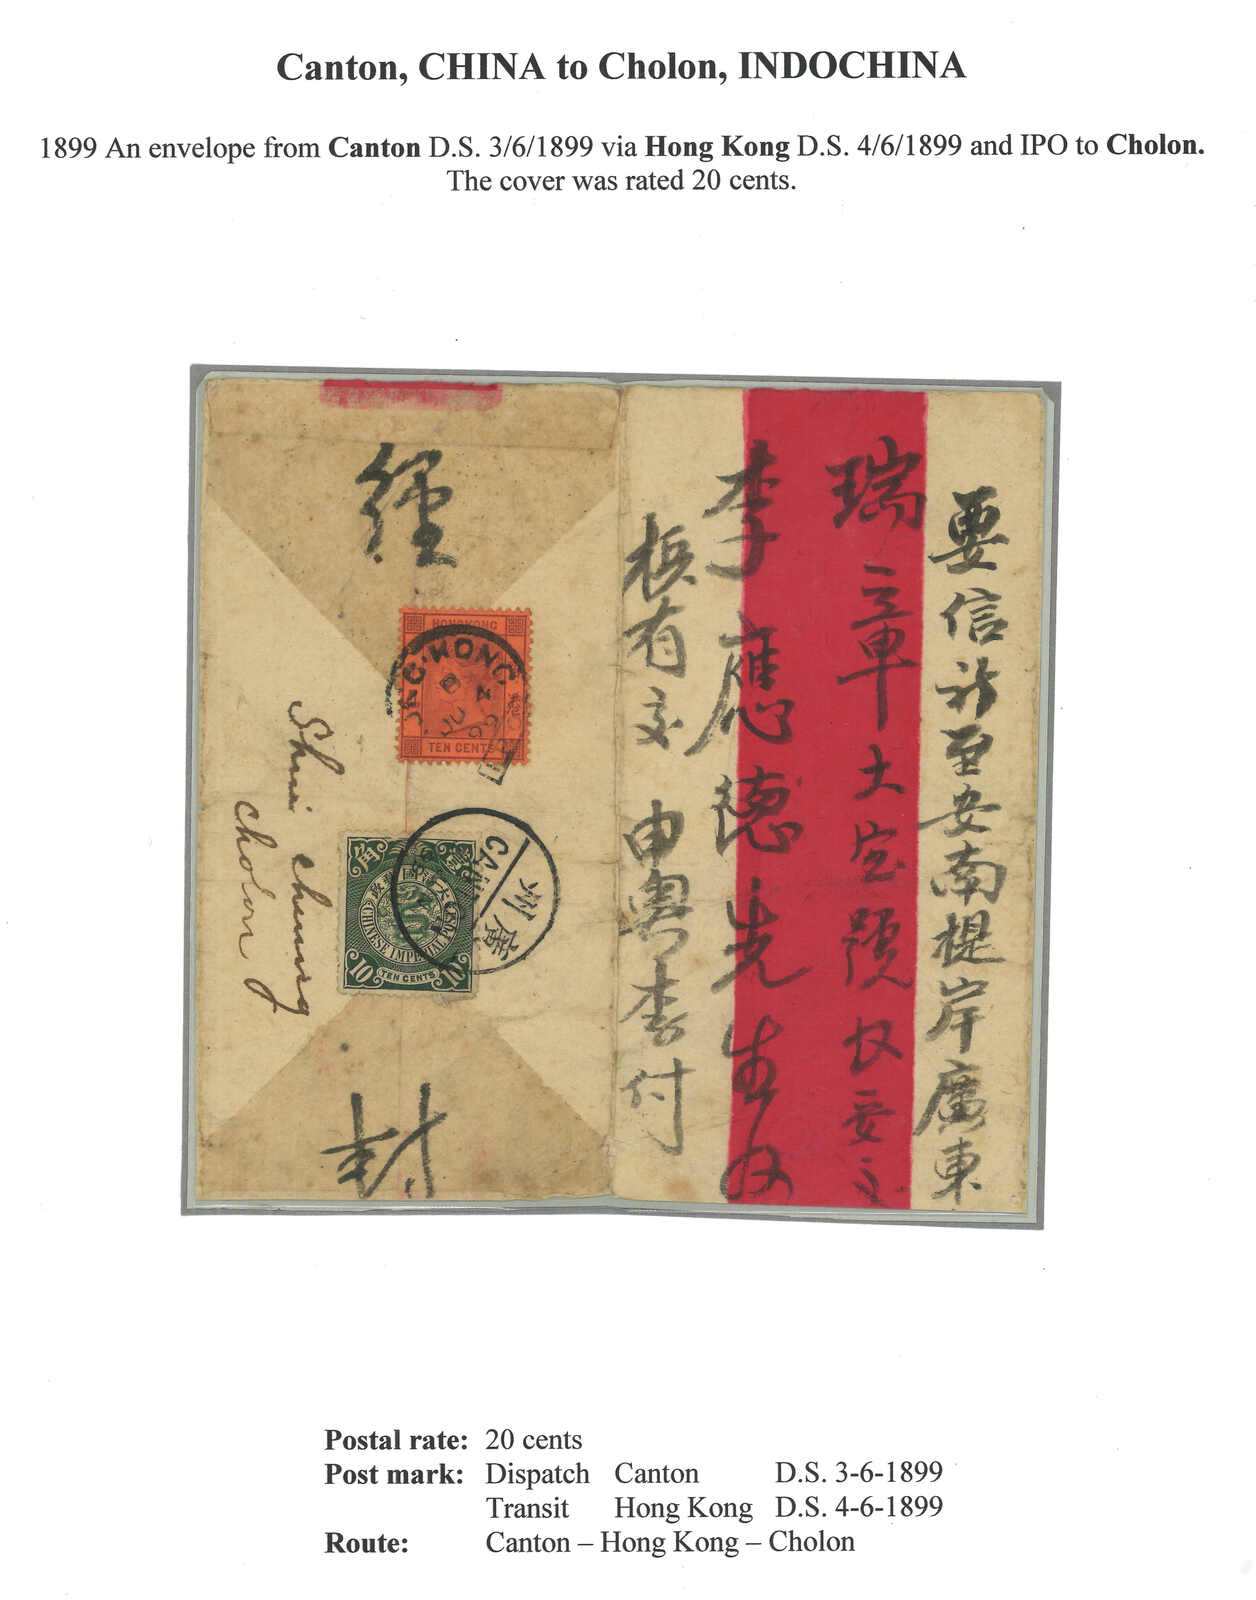 Canton, CHINA to Cholon, INDOCHINA
1899 An envelope from Canton D.S. 3/6/1899 via Hong Kong D.S. 4/6/1899 and IPO to Cholon.
The cover was rated 20 cents.
要信祈至安南提岸廣東
瑞章大宝號收妥交
李應德先生收
有交 申粤李付
經
HONGKONG
HONG
TEN CENTS
角
大清國郵政
CHINESE IMPERIAL POST
10 TEN CENTS 10
CAN
廣州
Shui chung
cholon
封
Postal rate: 20 cents
Post mark: Dispatch Canton D.S. 3-6-1899
Transit Hong Kong D.S. 4-6-1899
Route: Canton – Hong Kong – Cholon